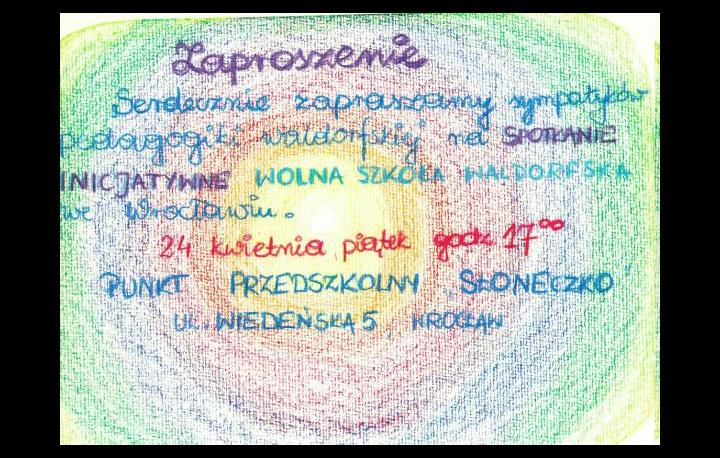 Zaproszenie
Serdecznie zapraszamy sympatyków
pedagogiki waldorfskiej na SPOTKANIE
INICJATYWNE WOLNA SZKOŁA WALDORFSKA
we Wrocławiu.
24 kwietnia piątek godz 17⁰⁰
PUNKT PRZEDSZKOLNY „SŁONECZKO"
UL. WIEDEŃSKA 5, WROCŁAW